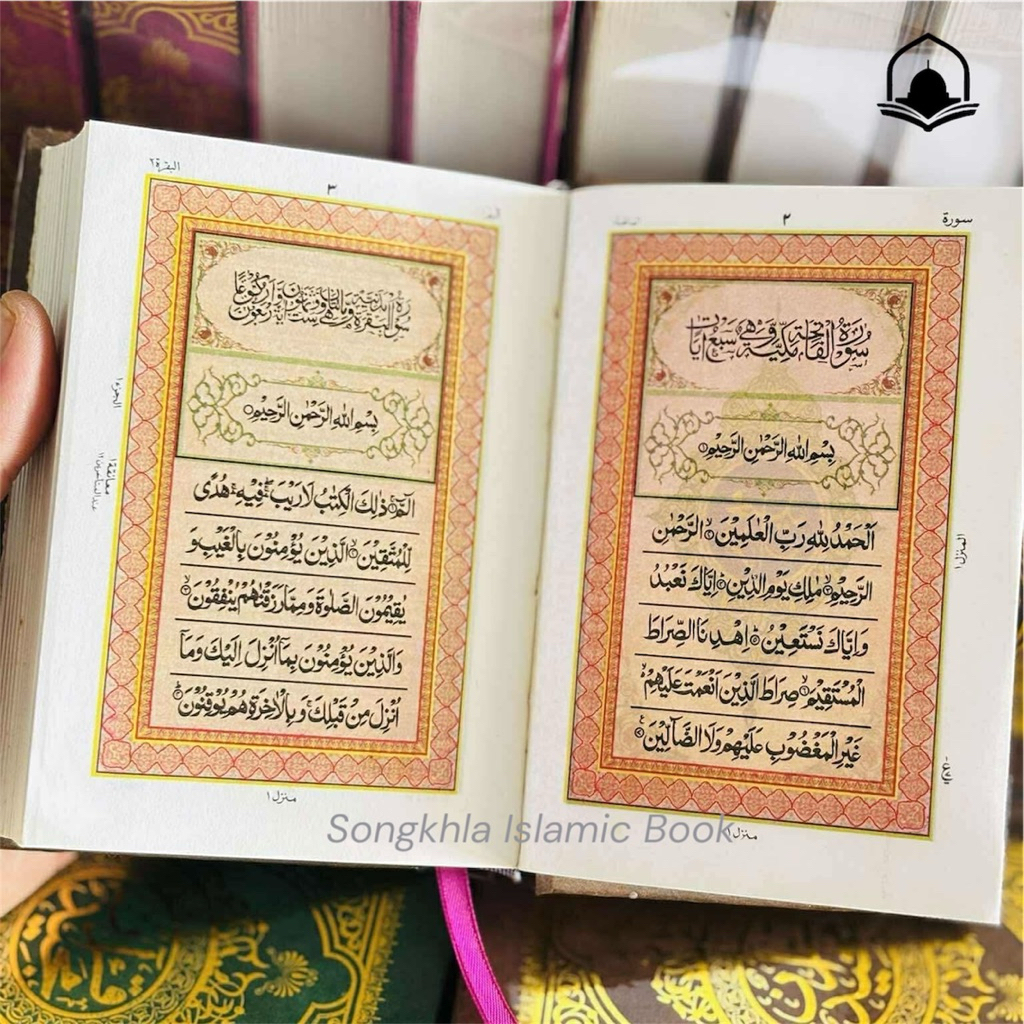 سورة
٢
الفاتحة
سُوْرَةُ الْفَاتِحَةِ مَكِّيَّةٌ وَّهِيَ سَبْعُ اٰيَاتٍ
بِسْمِ اللّٰهِ الرَّحْمٰنِ الرَّحِيْمِ ۝١
اَلْحَمْدُ لِلّٰهِ رَبِّ الْعٰلَمِيْنَ ۝ الرَّحْمٰنِ
الرَّحِيْمِ ۝ مٰلِكِ يَوْمِ الدِّيْنِ ۝ اِيَّاكَ نَعْبُدُ
وَاِيَّاكَ نَسْتَعِيْنُ ۝ اِهْدِنَا الصِّرَاطَ
الْمُسْتَقِيْمَ ۝ صِرَاطَ الَّذِيْنَ اَنْعَمْتَ عَلَيْهِمْ
غَيْرِ الْمَغْضُوْبِ عَلَيْهِمْ وَلَا الضَّآلِّيْنَ ۝
المنزل ١
منزل ١
٣
البقرة ٢
بِسْمِ اللّٰهِ الرَّحْمٰنِ الرَّحِيْمِ ۝
الٓمّٓ ۝ ذٰلِكَ الْكِتٰبُ لَا رَيْبَ ۛ فِيْهِ ۛ هُدًى
لِّلْمُتَّقِيْنَ ۝ الَّذِيْنَ يُؤْمِنُوْنَ بِالْغَيْبِ وَ
يُقِيْمُوْنَ الصَّلٰوةَ وَمِمَّا رَزَقْنٰهُمْ يُنْفِقُوْنَ ۝
وَالَّذِيْنَ يُؤْمِنُوْنَ بِمَآ اُنْزِلَ اِلَيْكَ وَمَآ
اُنْزِلَ مِنْ قَبْلِكَ ۚ وَبِالْاٰخِرَةِ هُمْ يُوْقِنُوْنَ ۝
الجزء ١
معانقة ١
منزل ١
Songkhla Islamic Book